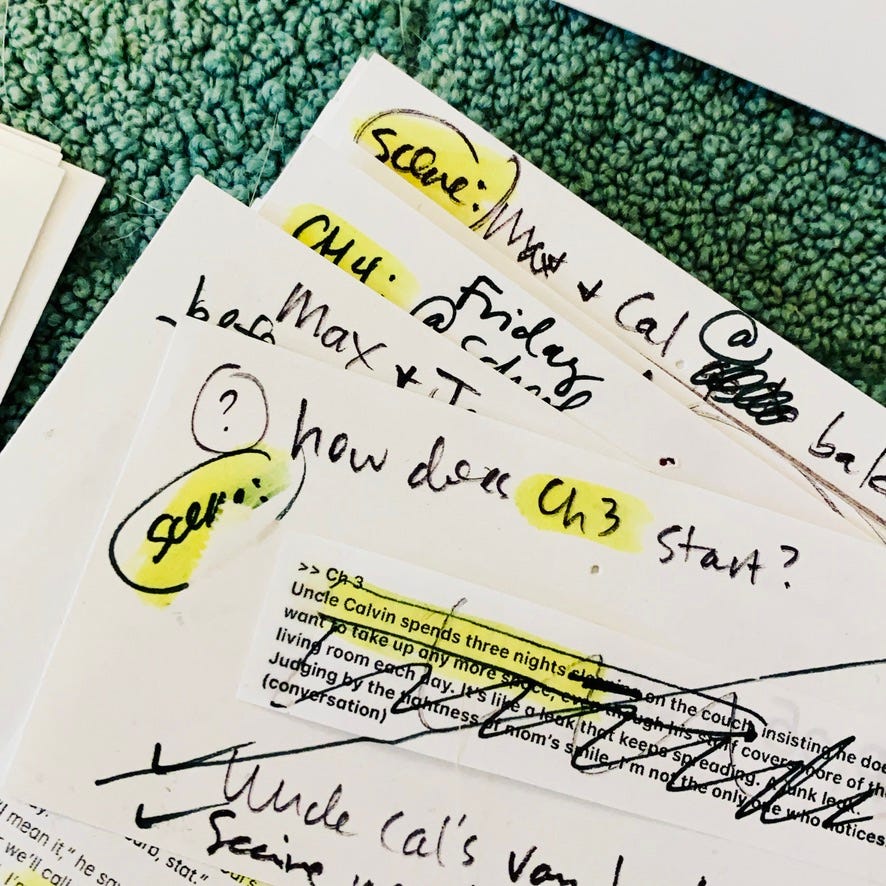 Scene:
Max + Cal @
CH 4:
Friday
@
Max +
?
how does Ch 3 start?
Scene:
>> Ch 3
Uncle Calvin spends three nights sleeping on the couch, insisting he doe
want to take up any more space, even though his stuff covers more of the
living room each day. It's like a leak that keeps spreading. A junk leak.
Judging by the tightness of mom's smile, I'm not the only one who notices.
(conversation)
Uncle Cal's van
Seeing
I mean it," he say
stat."
we'll call